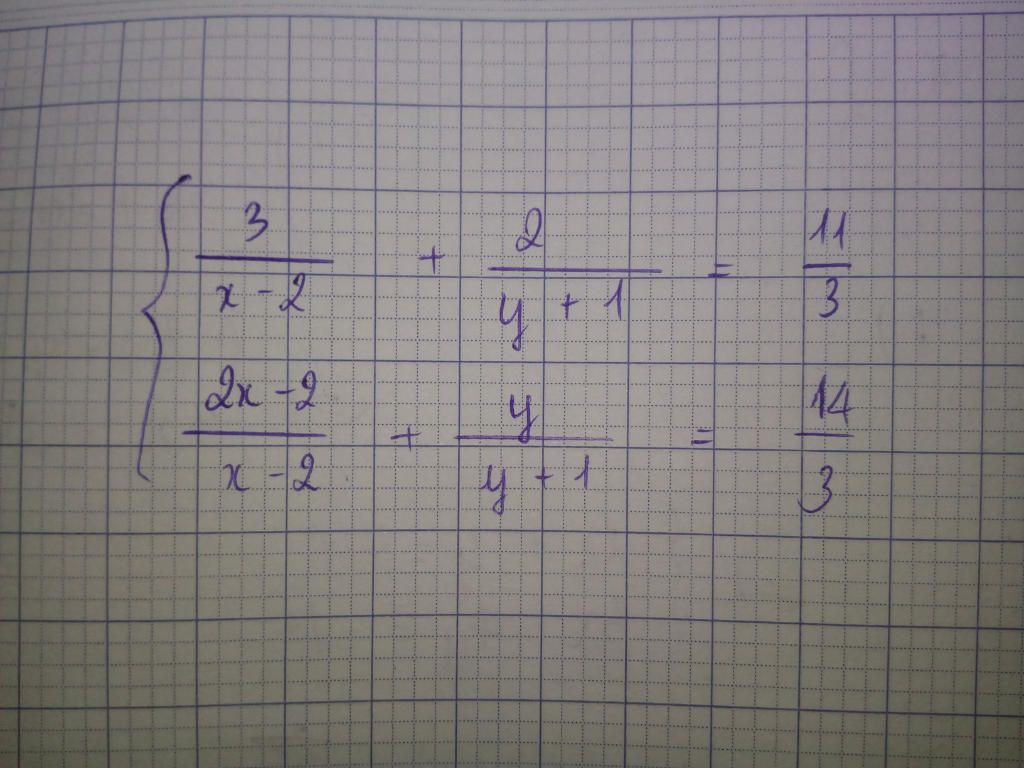 { 3/(x - 2) + 2/(y + 1) = 11/3
(2x - 2)/(x - 2) + y/(y + 1) = 14/3